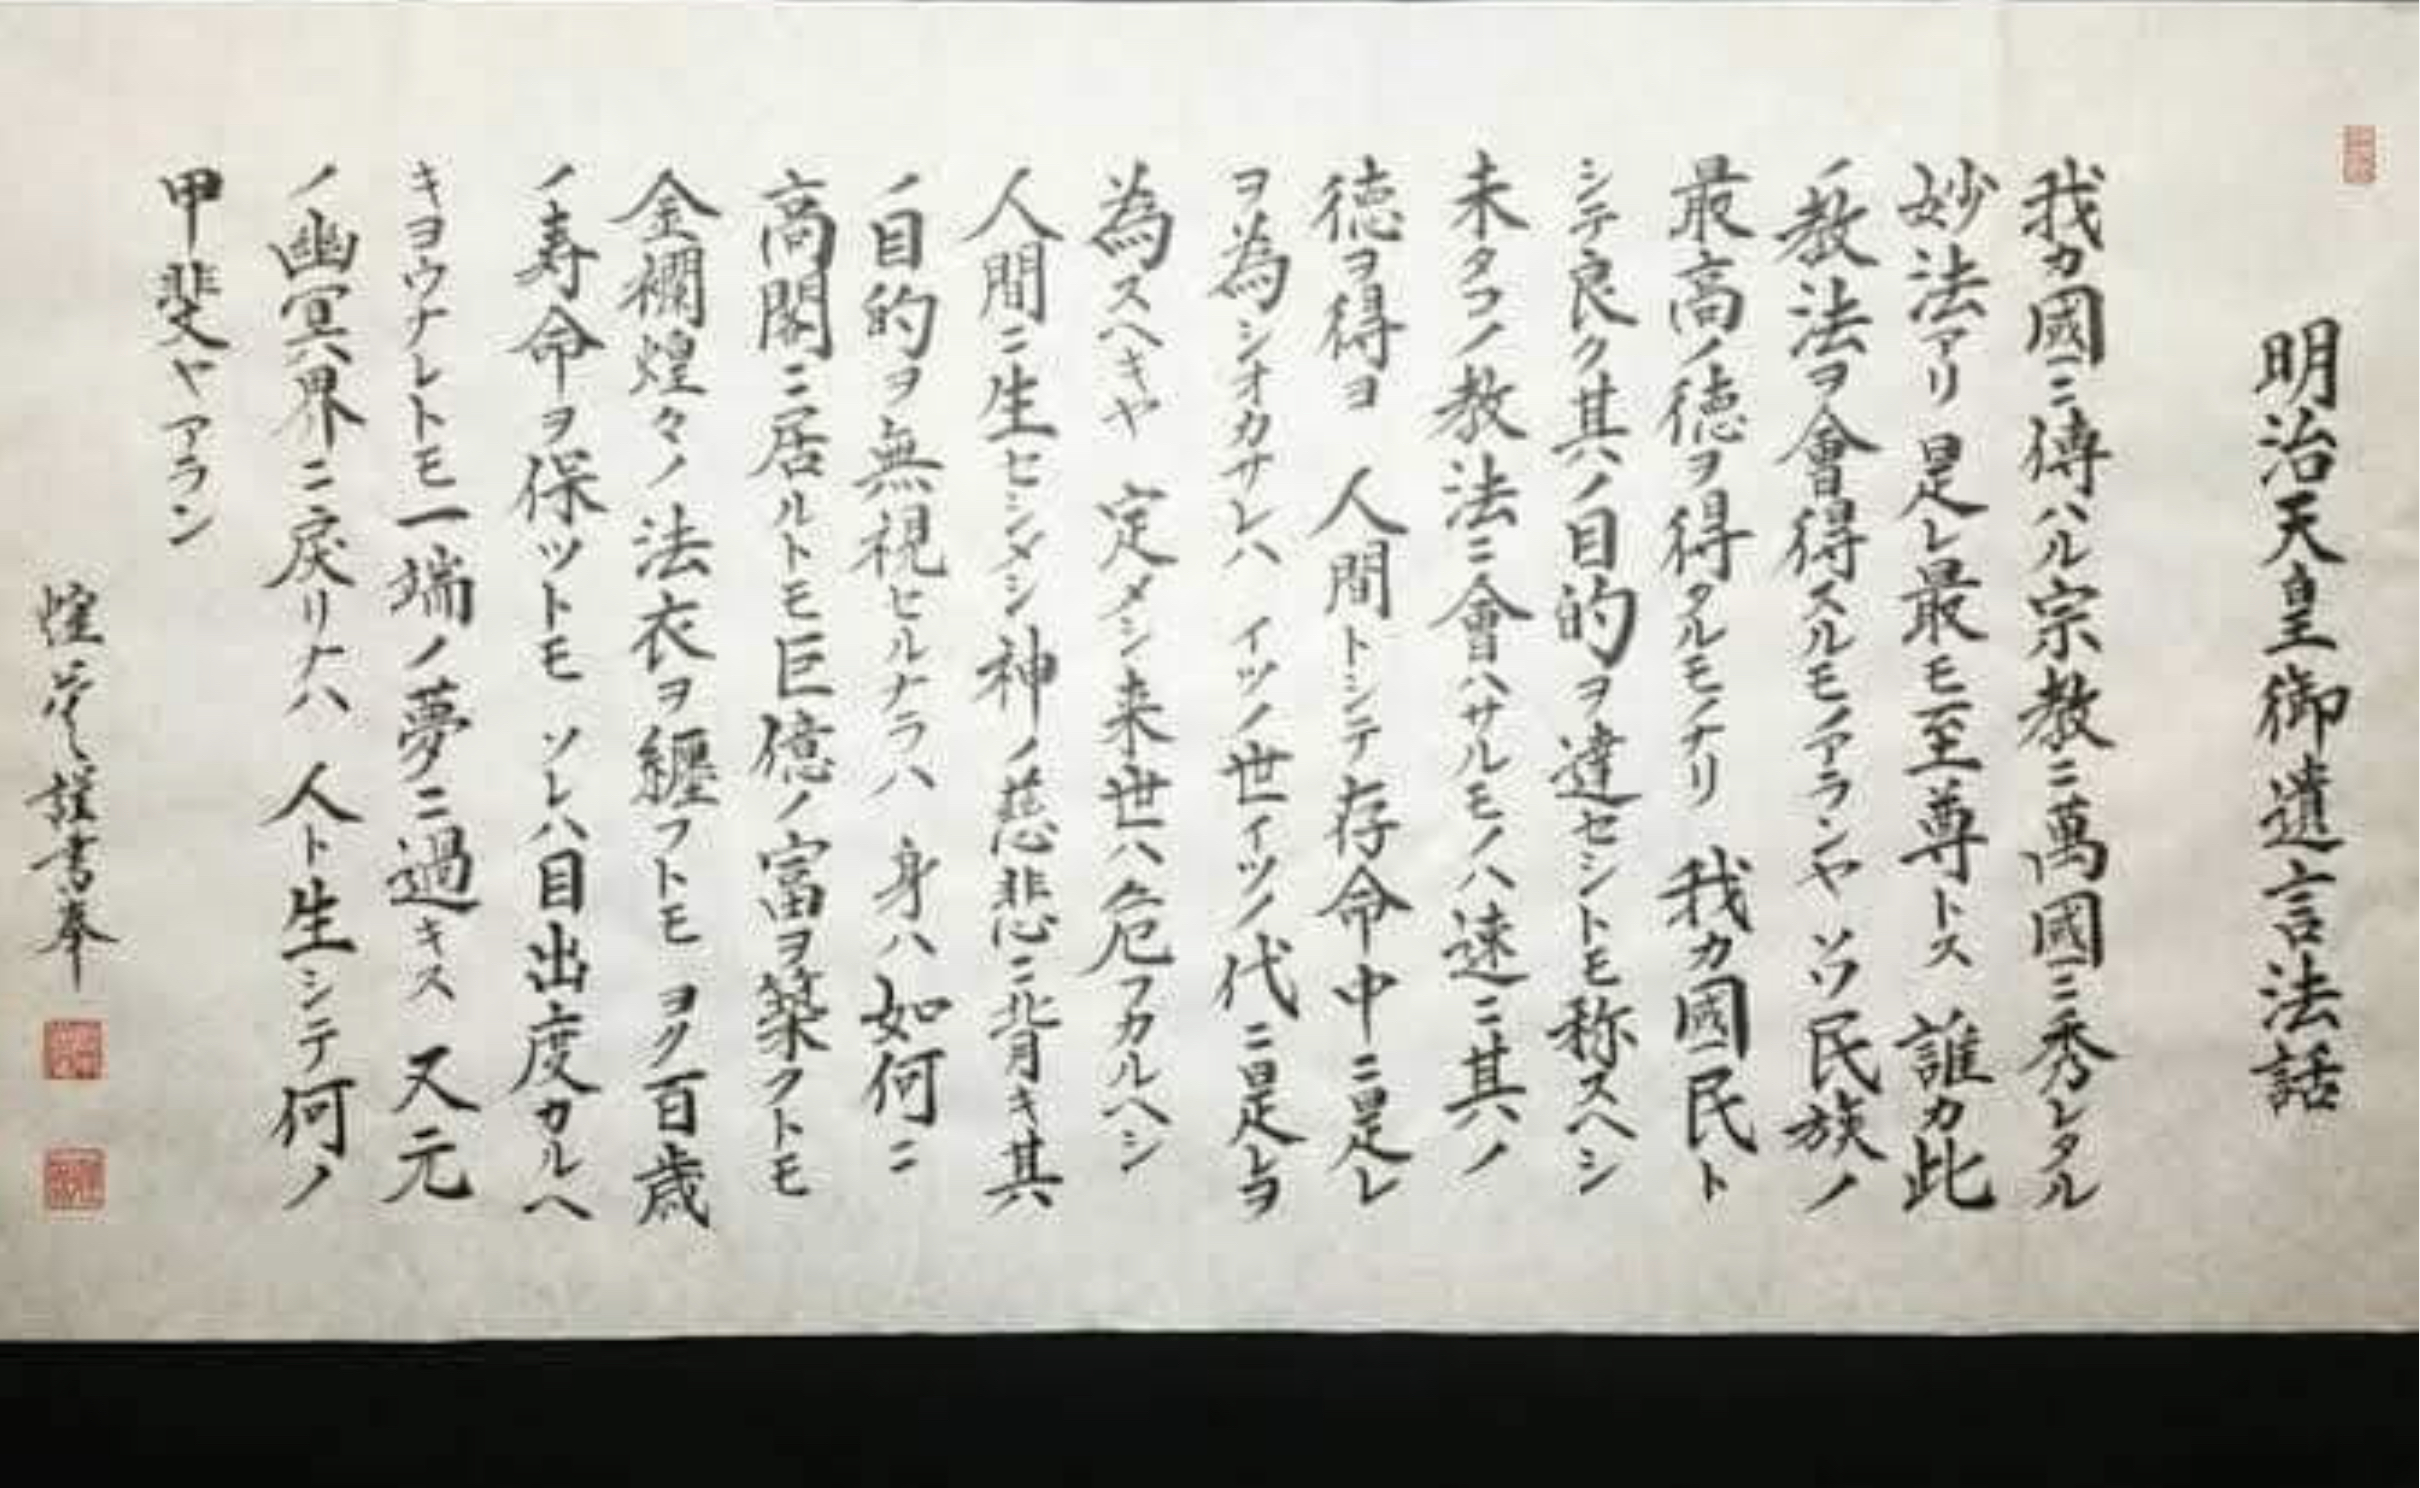 明治天皇御遺言法話
我カ國ニ傳ハル宗教ニ萬國ニ秀レタル
妙法アリ 是レ最モ至尊トス 誰カ此
ノ教法ヲ會得スルモノアランヤ ソワ民族ノ
最高ノ徳ヲ得タルモノナリ 我カ國民ト
シテ良ク其ノ目的ヲ達セシトモ称スヘシ
未タコノ教法ニ會ハサルモノハ速ニ其ノ
徳ヲ得ヨ 人間トシテ存命中ニ是レ
ヲ為シオカサレハ イツノ世イツノ代ニ是レヲ
為スヘキヤ 定メシ来世ハ危フカルヘシ
人間ニ生ヒシメシ神ノ慈悲ニ背キ其
ノ目的ヲ無視ヒルナラハ 身ハ如何ニ
高閣ニ居ルトモ巨億ノ富ヲ築クトモ
金襴煌々ノ法衣ヲ纏フトモ ヨク百歳
ノ寿命ヲ保ツトモ ソレハ目出度カルヘ
キヨウナレトモ一端ノ夢ニ過キス 又元
ノ幽冥界ニ戻リナハ 人ト生シテ何ノ
甲斐ヤアラン
謹書奉